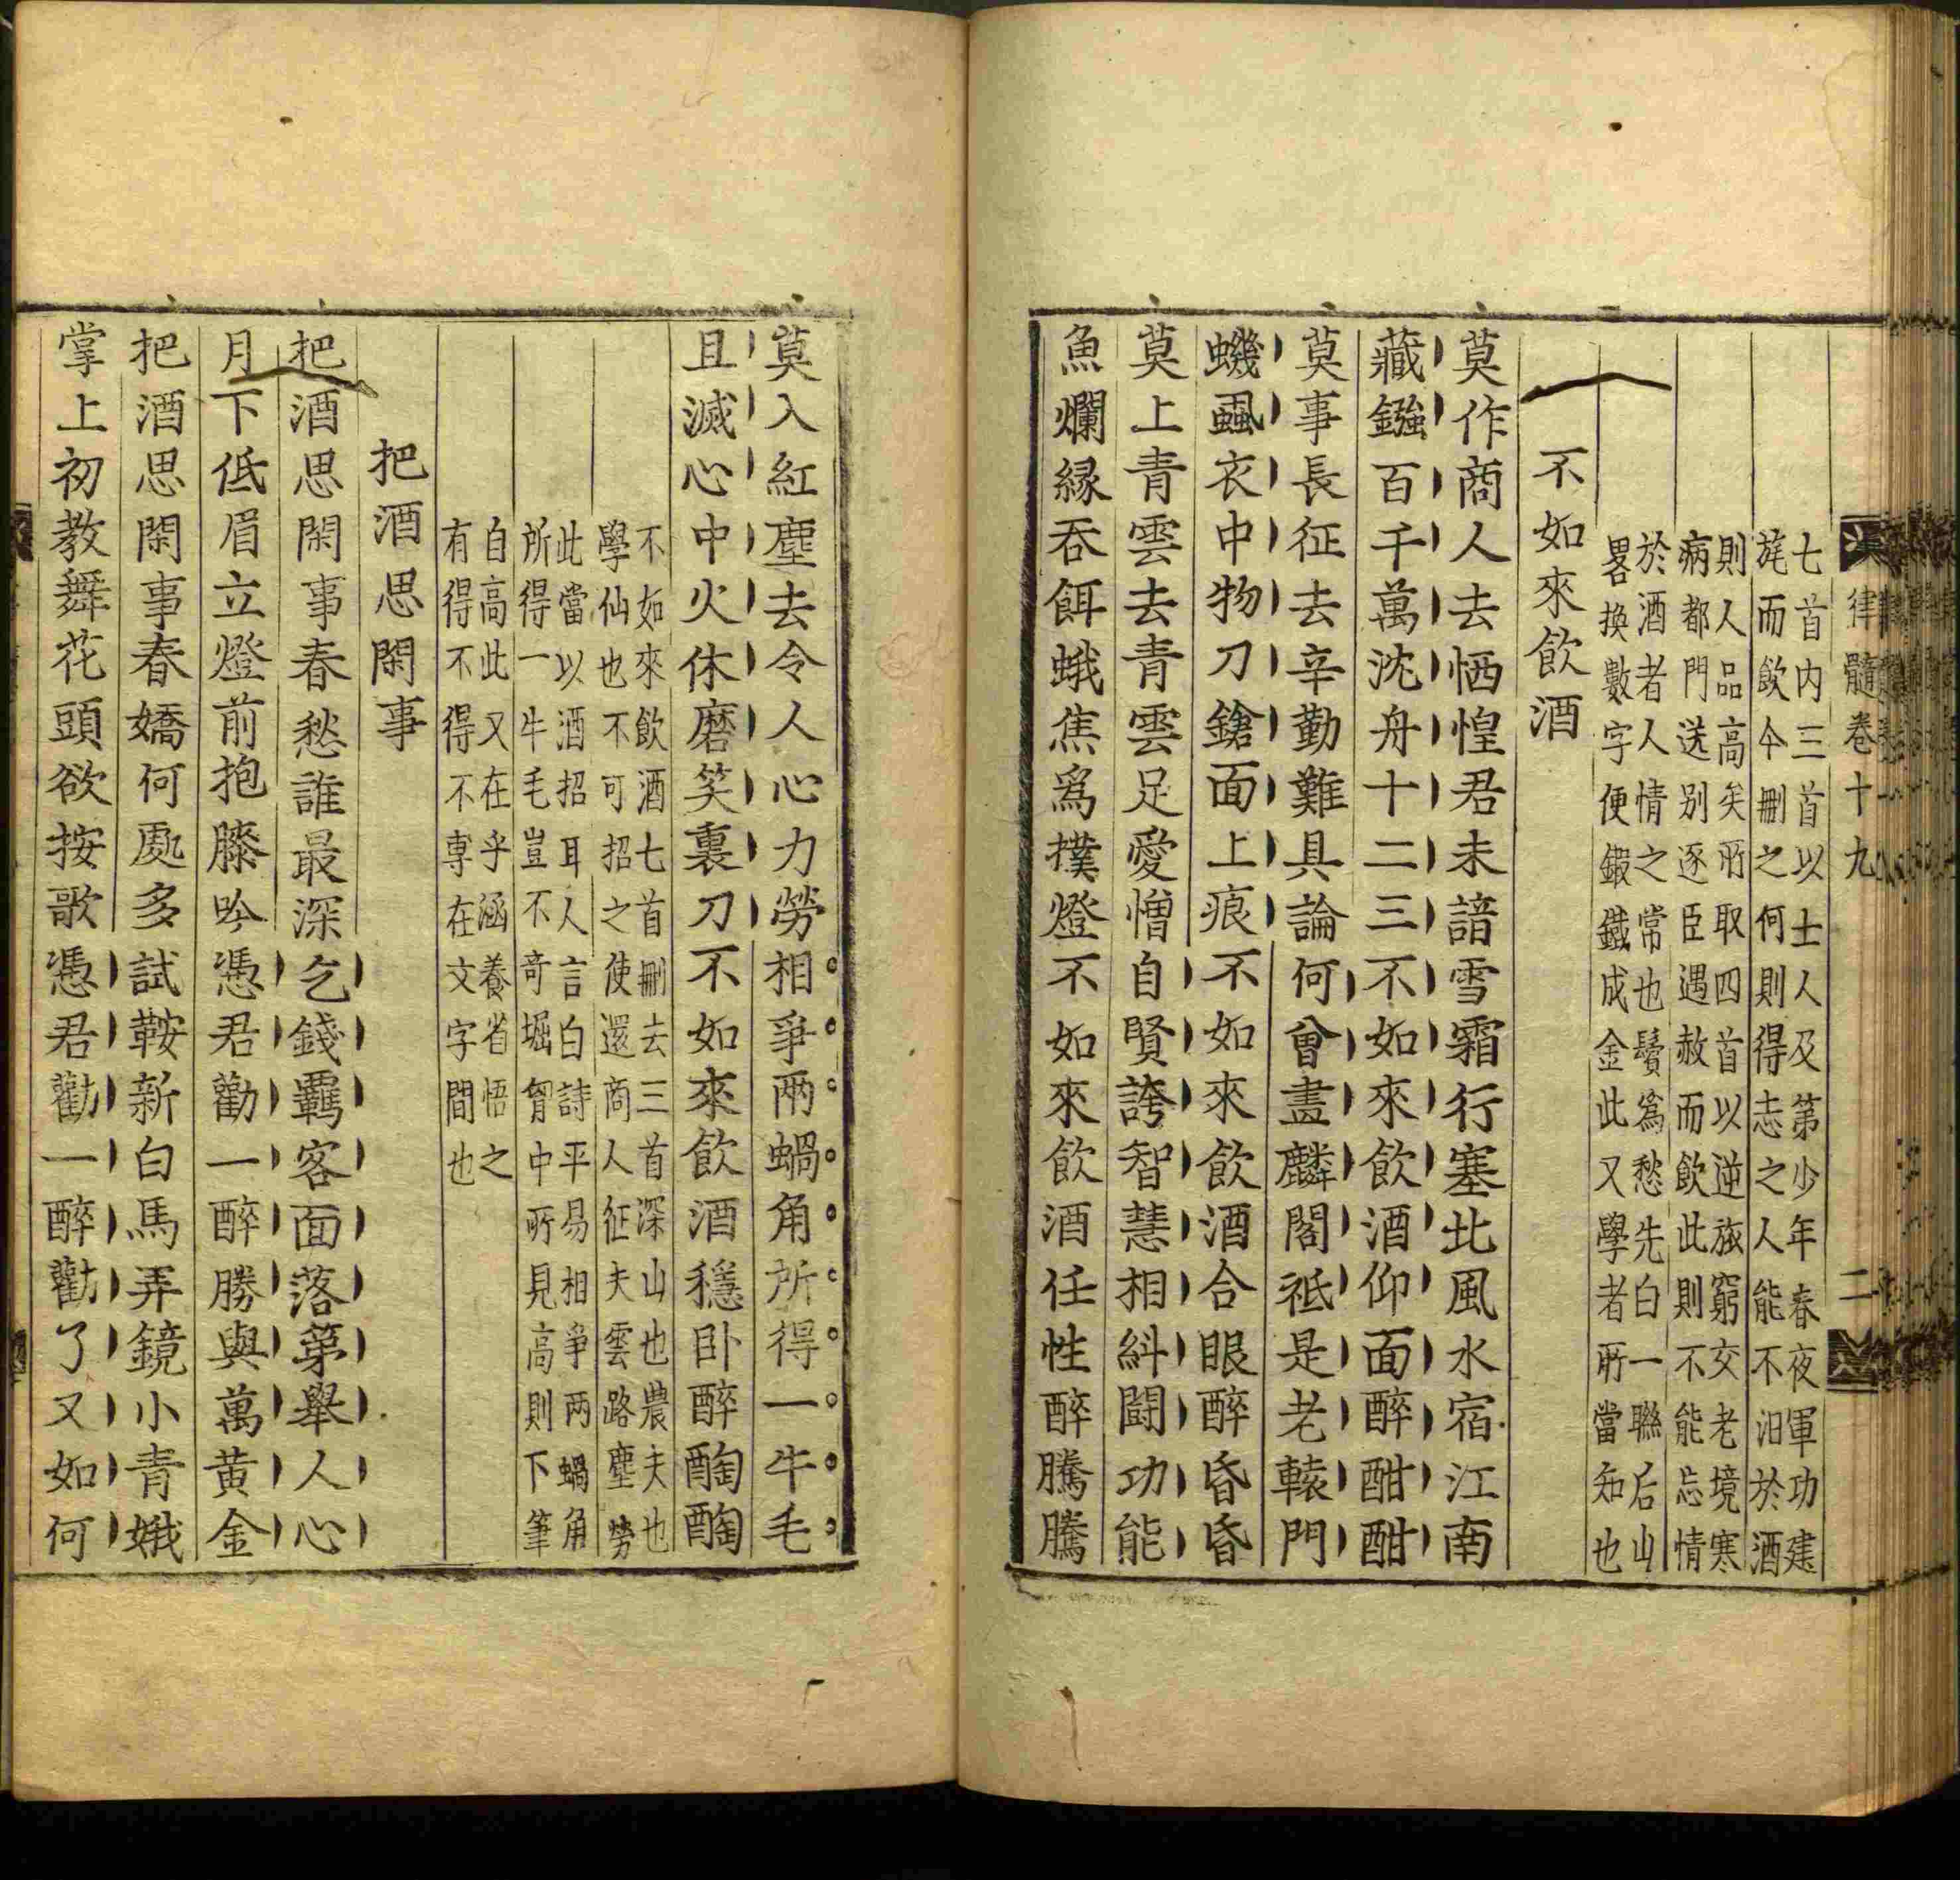 律髓卷十九
二
七首内三首以士人及第少年春夜軍功建
旄而飲今刪之何則得志之人能不汨於酒
則人品高矣所取四首以逆旅窮交老境寒
病都門送别逐臣遇赦而飲此則不能忘情
於酒者人情之常也鬢爲愁先白一聯后山
畧換數字便鍛鐵成金此又學者所當知也
不如來飲酒
莫作商人去恓惶君未諳雪霜行塞北風水宿江南
藏鏹百千萬沈舟十二三不如來飲酒仰面醉酣酣
莫事長征去辛勤難具論何曾畫麟閣祗是老轅門
蟣蝨衣中物刀鎗面上痕不如來飲酒合眼醉昏昏
莫上青雲去青雲足愛憎自賢誇智慧相糾鬪功能
魚爛緣吞餌蛾焦爲撲燈不如來飲酒任性醉騰騰
莫入紅塵去令人心力勞相爭兩蝸角所得一牛毛
且滅心中火休磨笑裏刀不如來飲酒穩卧醉醄醄
不如來飲酒七首刪去三首深山也農夫也
學仙也不可招之使還商人征夫雲路塵勞
此當以酒招耳人言白詩平易相爭兩蝸角
所得一牛毛豈不奇堀胷中所見高則下筆
自高此又在乎涵養省悟之
有得不得不専在文字間也
把酒思閑事
把酒思閑事春愁誰最深乞錢羈客面落第舉人心
月下低眉立燈前抱膝吟憑君勸一醉勝與萬黄金
把酒思閑事春嬌何處多試鞍新白馬弄鏡小青娥
掌上初教舞花頭欲按歌憑君勸一醉勸了又如何